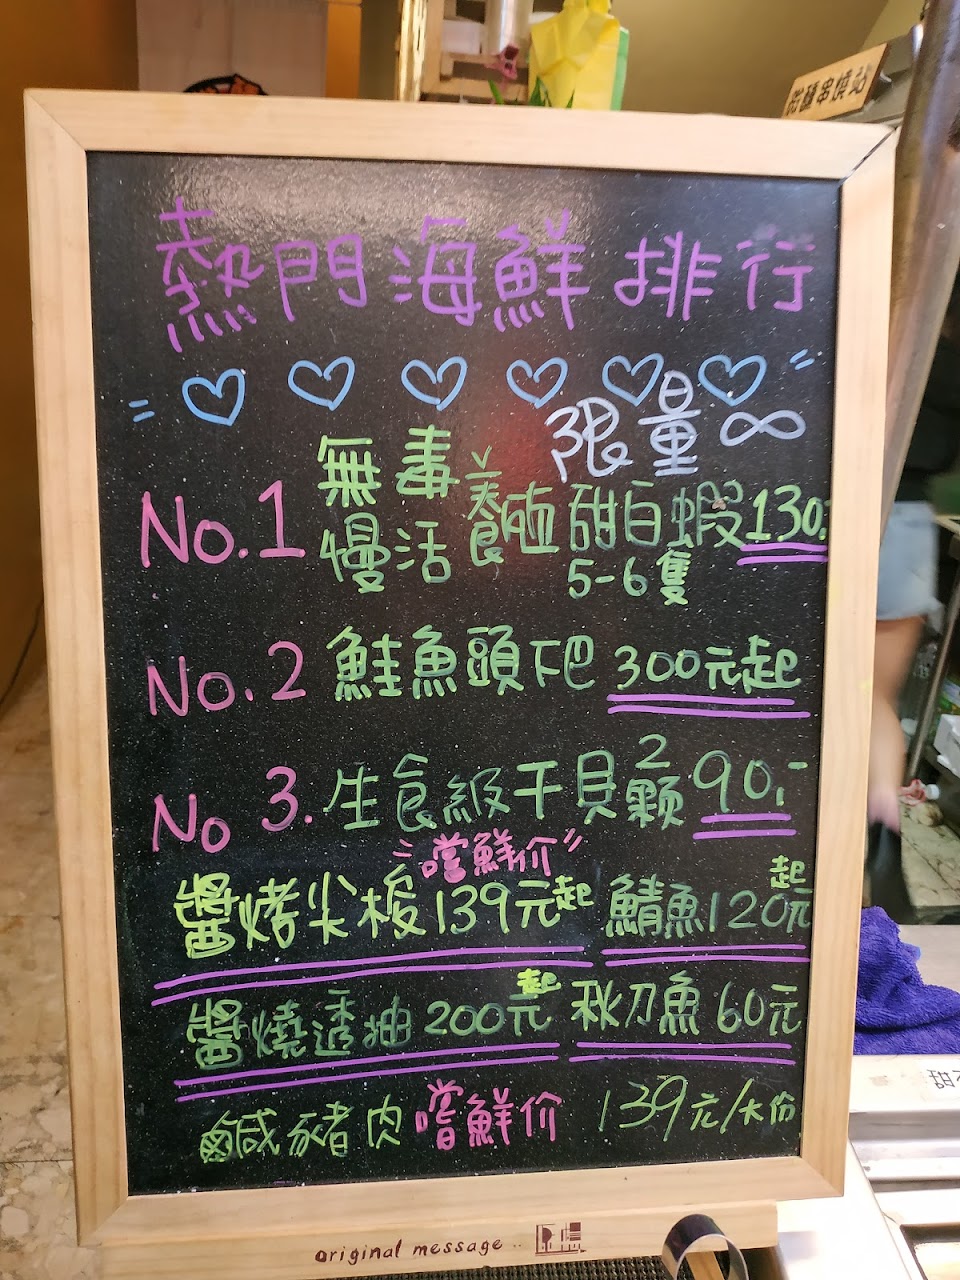 熱門海鮮排行
限量∞
No.1 無毒慢活養殖甜白蝦130.
5-6隻
No.2 鮭魚頭下巴 300元起
No 3. 生食級干貝2顆90.-
"嚐鮮价"
醬烤尖梭139元起 鯖魚120元起
醬燒透抽200元起 秋刀魚60元
鹹豬肉嚐鮮价 139元/大份
original message
串燒站
甜